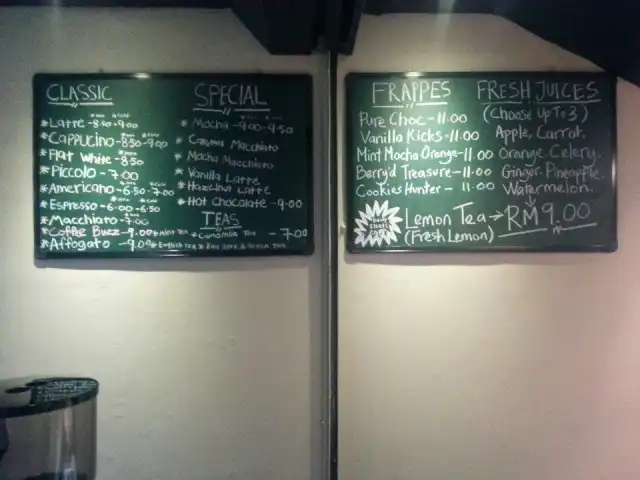 CLASSIC
Latte - 8.50 - 9.00
Cappucino - 8.50 - 9.00
Flat White - 8.50
Piccolo - 7.00
Americano - 6.50 - 7.00
Espresso - 6.00 - 6.50
Macchiato - 7.00
Coffee Buzz - 9.00
Affogato - 9.00
SPECIAL
Mocha - 9.00 - 9.50
Caramel Macchiato
Mocha Macchiato
Vanilla Latte
Hazelnut Latte
Hot Chocolate - 9.00
TEAS
Camomile Tea - 7.00
English Tea
Green Tea
FRAPPES
Pure Choc - 11.00
Vanilla Kicks - 11.00
Mint Mocha Orange - 11.00
Berry'd Treasure - 11.00
Cookies Hunter - 11.00
FRESH JUICES
(Choose Up To 3)
Apple, Carrot,
Orange, Celery,
Ginger, Pineapple,
Watermelon.
RM 9.00
Lemon Tea
(Fresh Lemon)